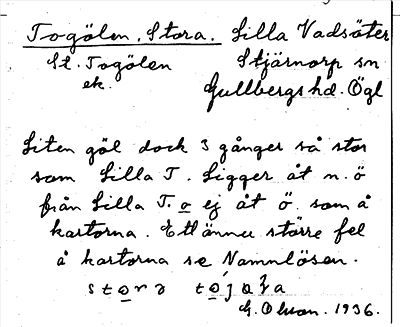 Togölen, Stora. Lilla Vadsäter
St. Togölen Stjärnorp sn
ek. Gullbergs hd. Ögl
Liten göl dock 3 gånger så stor
som Lilla T. Ligger åt n.ö
från Lilla T. o ej åt ö. som å
kartorna. Ett ännu större fel
å kartorna se Namnlösen.
G. Olson. 1936.